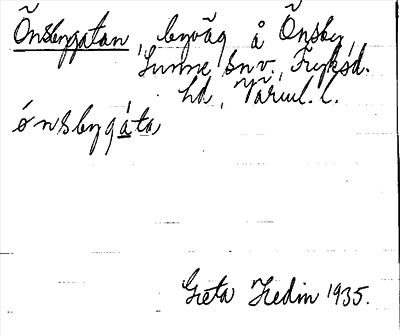 Õnsbygatan, byväg å Õnsby,
Sunne sn v., Fryksd.
hd, Värml. l.
ónsbygáta
Greta Hedin 1935.